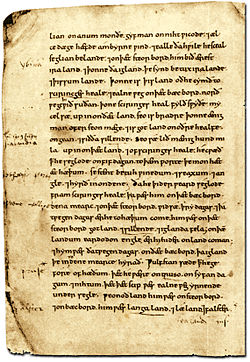 lian on anum monðe. gyf man on niht ƿicode. ⁊ æl
ce dæge hæfde ambyrne ƿind. ⁊ ealle ða hƿile he sceal
seglian be lande. ⁊ on þæt steorbord him bið ærest
iraland. ⁊ þonne ða igland þe synd betux iralande.
⁊ þissum lande. þonne is þis land oð he cymð to
scirincges heale. ⁊ ealne ƿeg on þæt bæcbord norð
ƿeg ƿið suðan þone sciringes heal fylð sƿyðe my
cel sæ up in on ðæt land. seo is bradre þonne ænig
man ofer seon mæge. ⁊ is gotland on oðre healfe
ongean. ⁊ siððan sillende. seo sæ lið mænig hund mi
la up in on þæt land. ⁊ of sciringes heale he cƿæð
þæt he seglode on fif dagan. to þæm porte þe mon hæt
æt hæþum. se stent betuh ƿinedum. ⁊ seaxum. ⁊ an
gle. ⁊ hyrð in on dene. ða he þiderƿeard seglode
fram sciringes heale. þa ƿæs him on þæt bæcbord
denamearc. ⁊ on þæt steorbord ƿidsæ þry dagas. ⁊ þa
tƿegen dagas ær he to hæþum come. him ƿæs on þæt
steorbord gotland. ⁊ sillende. ⁊ iglanda fela. on þæm
landum eardodon engle ær hi hider on land coman.
⁊ hym ƿæs ða tƿegen dagas. on ðæt bæcbord. þa igland
þe in denemearce hyrað. Ƿulfstan sæde þæt he ge
fore of hæðum. þæt he ƿære on truso. on syfan da
gum. ⁊ nihtum. þæt þæt scip ƿæs ealne ƿeg yrnende
under segle. ƿeonoðland him ƿæs on steorbord
⁊ on bæcbord him ƿæs langaland. ⁊ læland. ⁊ falster